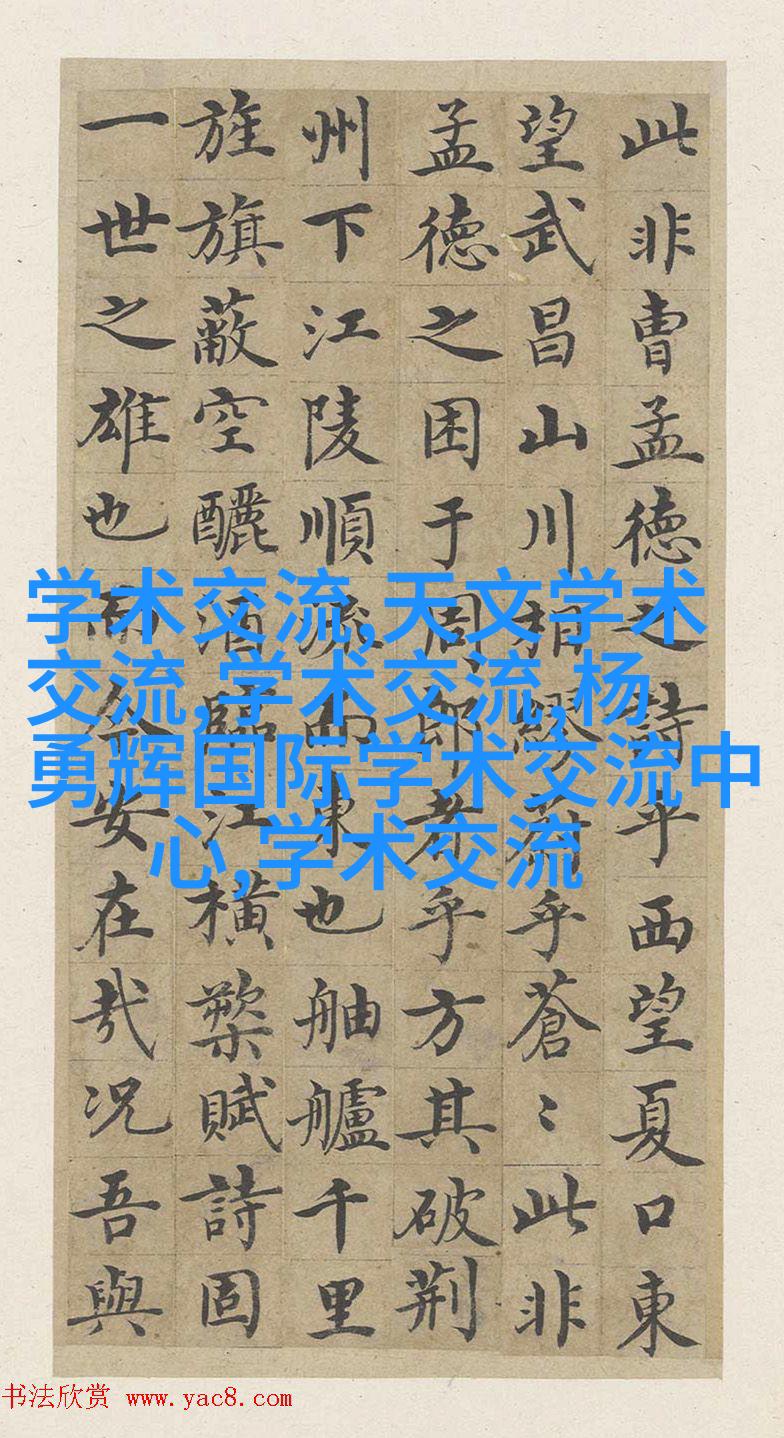 此非曹孟德之詩乎西望夏口東
望武昌山川相繆蔚乎蒼〻此非
孟德之困于周郎者乎方其破荆
州下江陵順流而東也舳艫千里
旌旗蔽空釃酒臨江横槊賦詩固
一世之雄也而今安在哉况吾與
学术交流,天文学术
交流,学术交流,杨
勇辉国际学术交流中
心,学术交流
书法欣赏 www.yac8.com